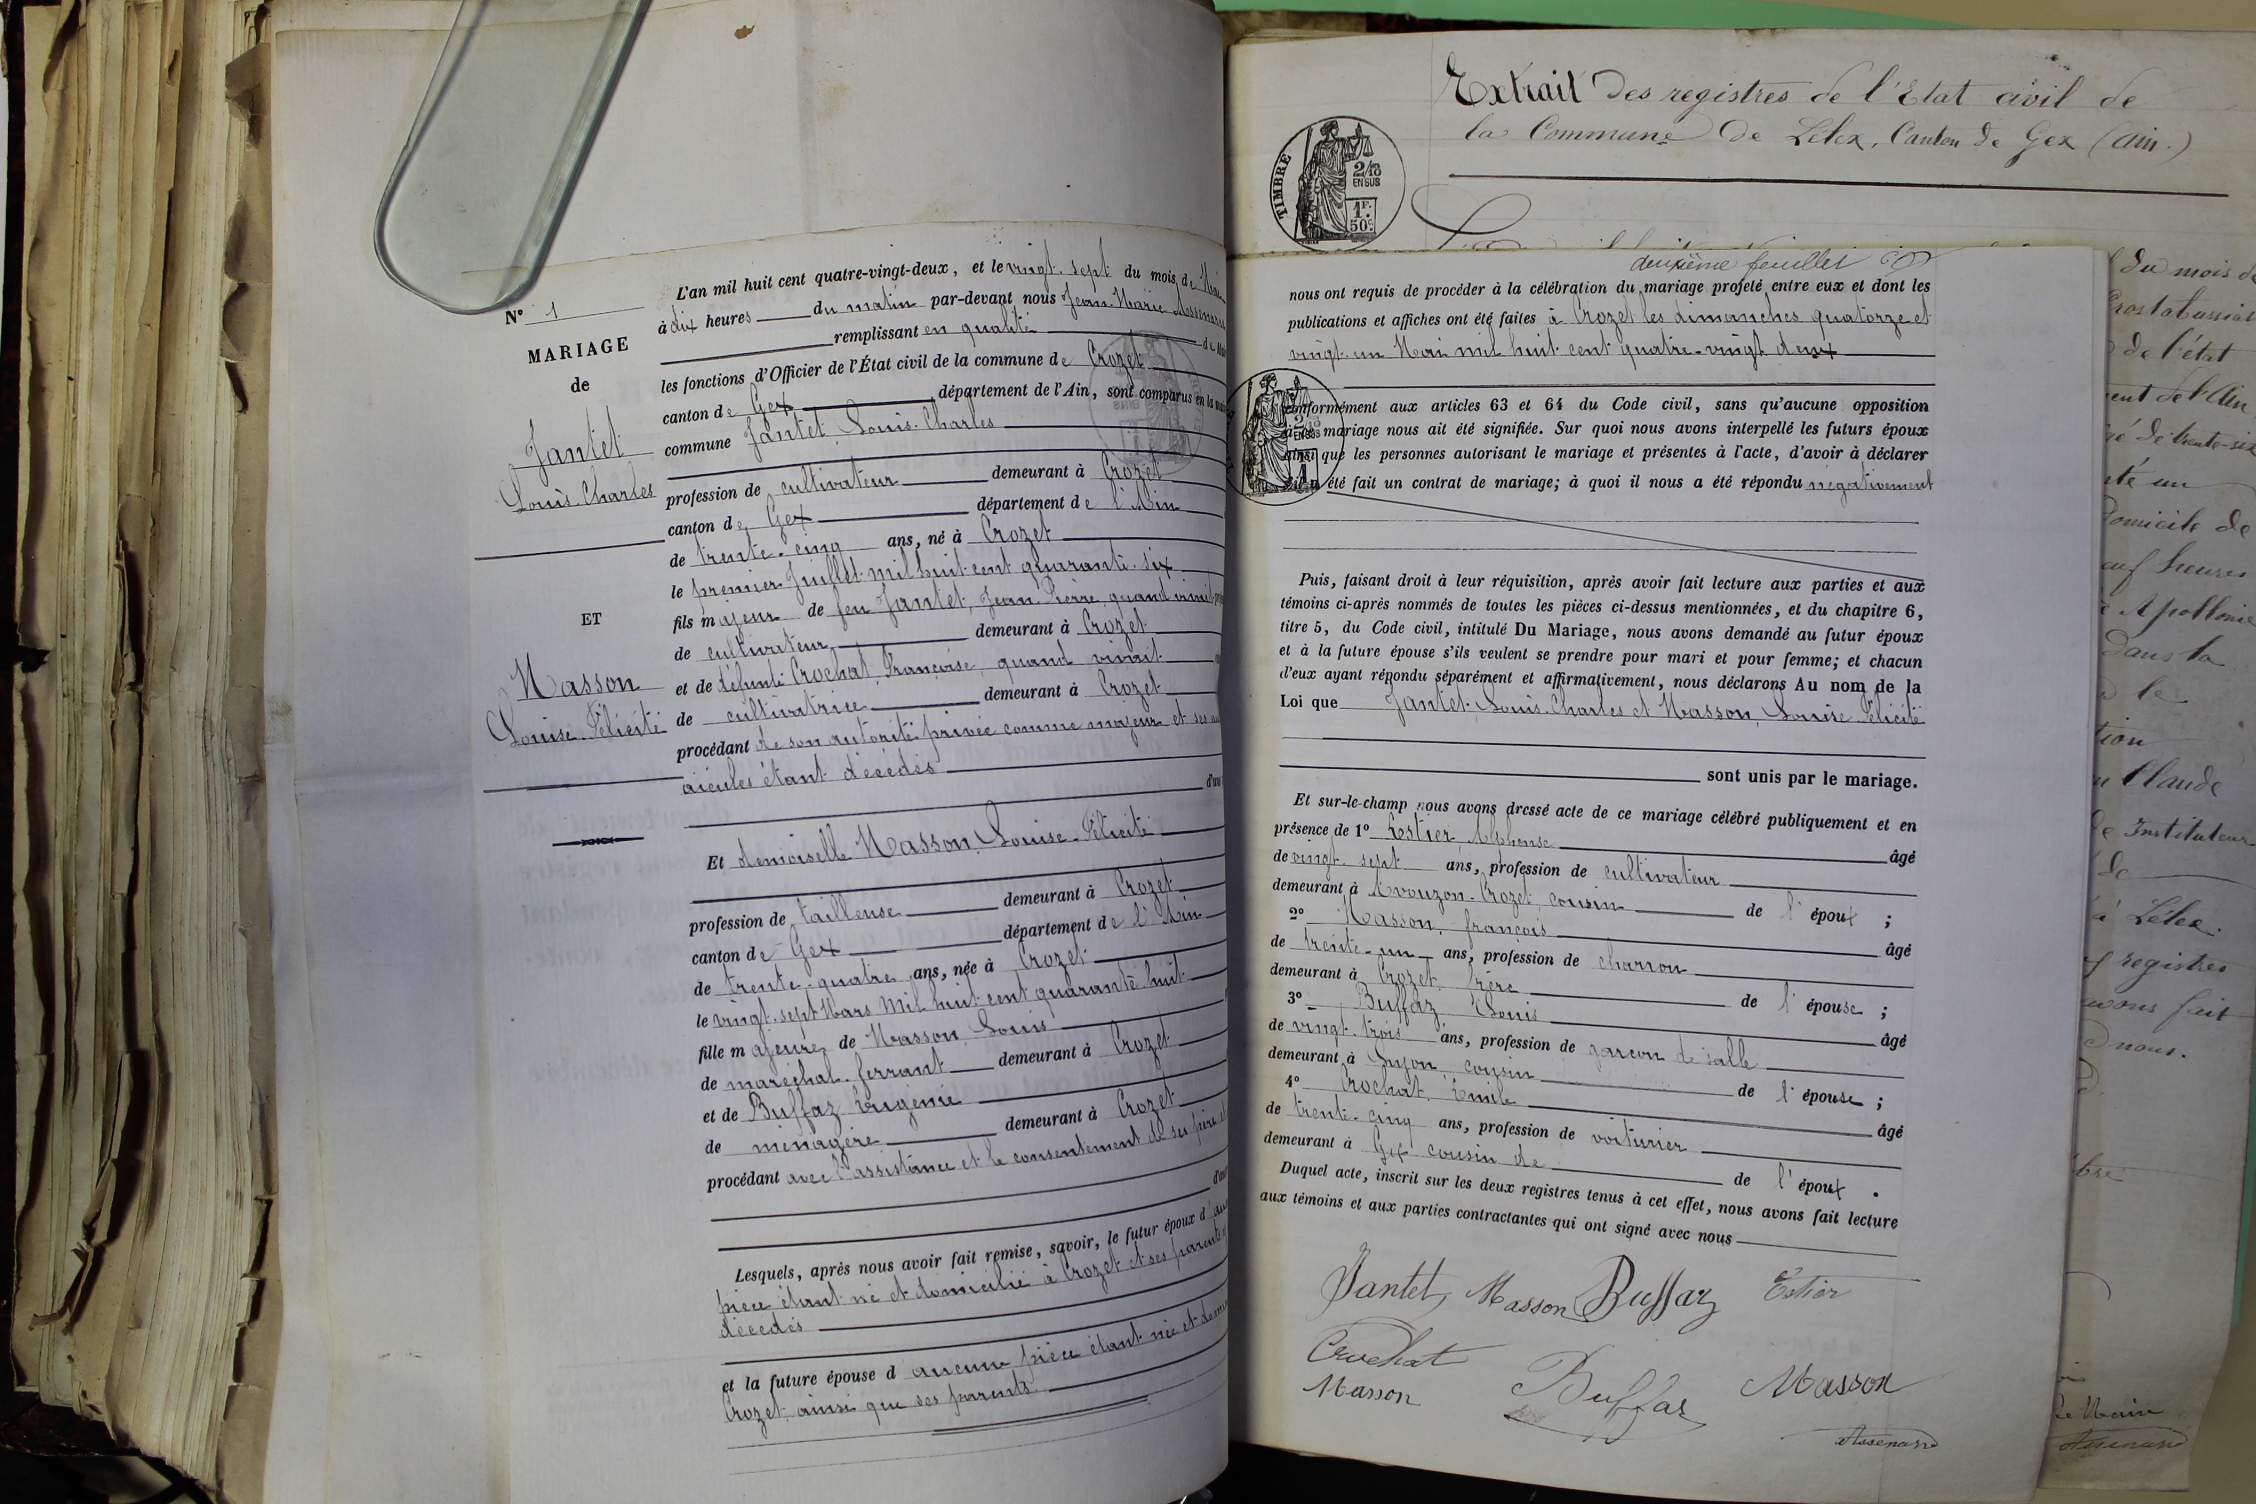 N° 1
MARIAGE
de
Jantet
Louis-Charles
ET
Masson
Louise-Félicité
L'an mil huit cent quatre-vingt-deux, et le vingt-sept du mois de Mai
à dix heures du matin par-devant nous Jean-Marie
remplissant en qualité de
les fonctions d'Officier de l'État civil de la commune de Crozet
canton de Gex département de l'Ain, sont comparus en la
commune Jantet, Louis-Charles
profession de cultivateur demeurant à Crozet
canton de Gex département de l'Ain
de trente-cinq ans, né à Crozet
le premier Juillet mil huit cent quarante-six
fils majeur de feu Jantet, Jean-Pierre, quand vivait
de cultivateur demeurant à Crozet
et de défunte Crochat, Françoise, quand vivait
de cultivatrice demeurant à Crozet
procédant de son autorité privée comme majeur et ses
aïeules étant décédés
d'un
Et demoiselle Masson, Louise-Félicité
profession de tailleuse demeurant à Crozet
canton de Gex département de l'Ain
de trente-quatre ans, née à Crozet
le vingt-sept Mars mil huit cent quarante-huit
fille majeure de Masson, Louis
de maréchal-ferrant demeurant à Crozet
et de Buffaz Eugénie
de ménagère demeurant à Crozet
procédant avec l'assistance et le consentement de ses père et
Lesquels, après nous avoir fait remise, savoir, le futur époux d'
pièce étant né et domicilié à Crozet et ses parents
décédés
et la future épouse d aucune pièce étant née et
Crozet, ainsi que ses parents.
Extrait Des registres de l'Etat civil de
la Commune De Lélex, Canton de Gex (Ain.)
TIMBRE
2/10
EN SUS
1F.
50c.
deuxième feuillet
nous ont requis de procéder à la célébration du mariage projeté entre eux et dont les
publications et affiches ont été faites à Crozet les dimanches quatorze et
vingt-un Mai mil huit cent quatre-vingt deux
conformément aux articles 63 et 64 du Code civil, sans qu'aucune opposition
à ce mariage nous ait été signifiée. Sur quoi nous avons interpellé les futurs époux
ainsi que les personnes autorisant le mariage et présentes à l'acte, d'avoir à déclarer
été fait un contrat de mariage; à quoi il nous a été répondu négativement
Puis, faisant droit à leur réquisition, après avoir fait lecture aux parties et aux
témoins ci-après nommés de toutes les pièces ci-dessus mentionnées, et du chapitre 6,
titre 5, du Code civil, intitulé Du Mariage, nous avons demandé au futur époux
et à la future épouse s'ils veulent se prendre pour mari et pour femme; et chacun
d'eux ayant répondu séparément et affirmativement, nous déclarons Au nom de la
Loi que Jantet, Louis-Charles et Masson, Louise Félicité
sont unis par le mariage.
Et sur-le-champ nous avons dressé acte de ce mariage célébré publiquement et en
présence de 1° Estier, Alphonse âgé
de vingt-sept ans, profession de cultivateur
demeurant à Avouzon-Crozet, cousin de l'époux ;
2° Masson, françois âgé
de trente-un ans, profession de charron
demeurant à Crozet, frère de l'épouse ;
3° Buffaz Louis âgé
de vingt-trois ans, profession de garçon de salle
demeurant à Lyon, cousin de l'épouse ;
4° Crochat, Emile âgé
de trente-cinq ans, profession de voiturier
demeurant à Gex cousin de de l'époux .
Duquel acte, inscrit sur les deux registres tenus à cet effet, nous avons fait lecture
aux témoins et aux parties contractantes qui ont signé avec nous
Jantet, Masson Buffaz Estier
Crochat
Masson Buffaz Masson
du mois de
de l'état
de l'Ain
de trente-six
té un
Domicile de
heures
Apollonie
Dans la
le
Claude
Instituteur
de
à Lélex.
registres
avons fait
nous.
Le Maire